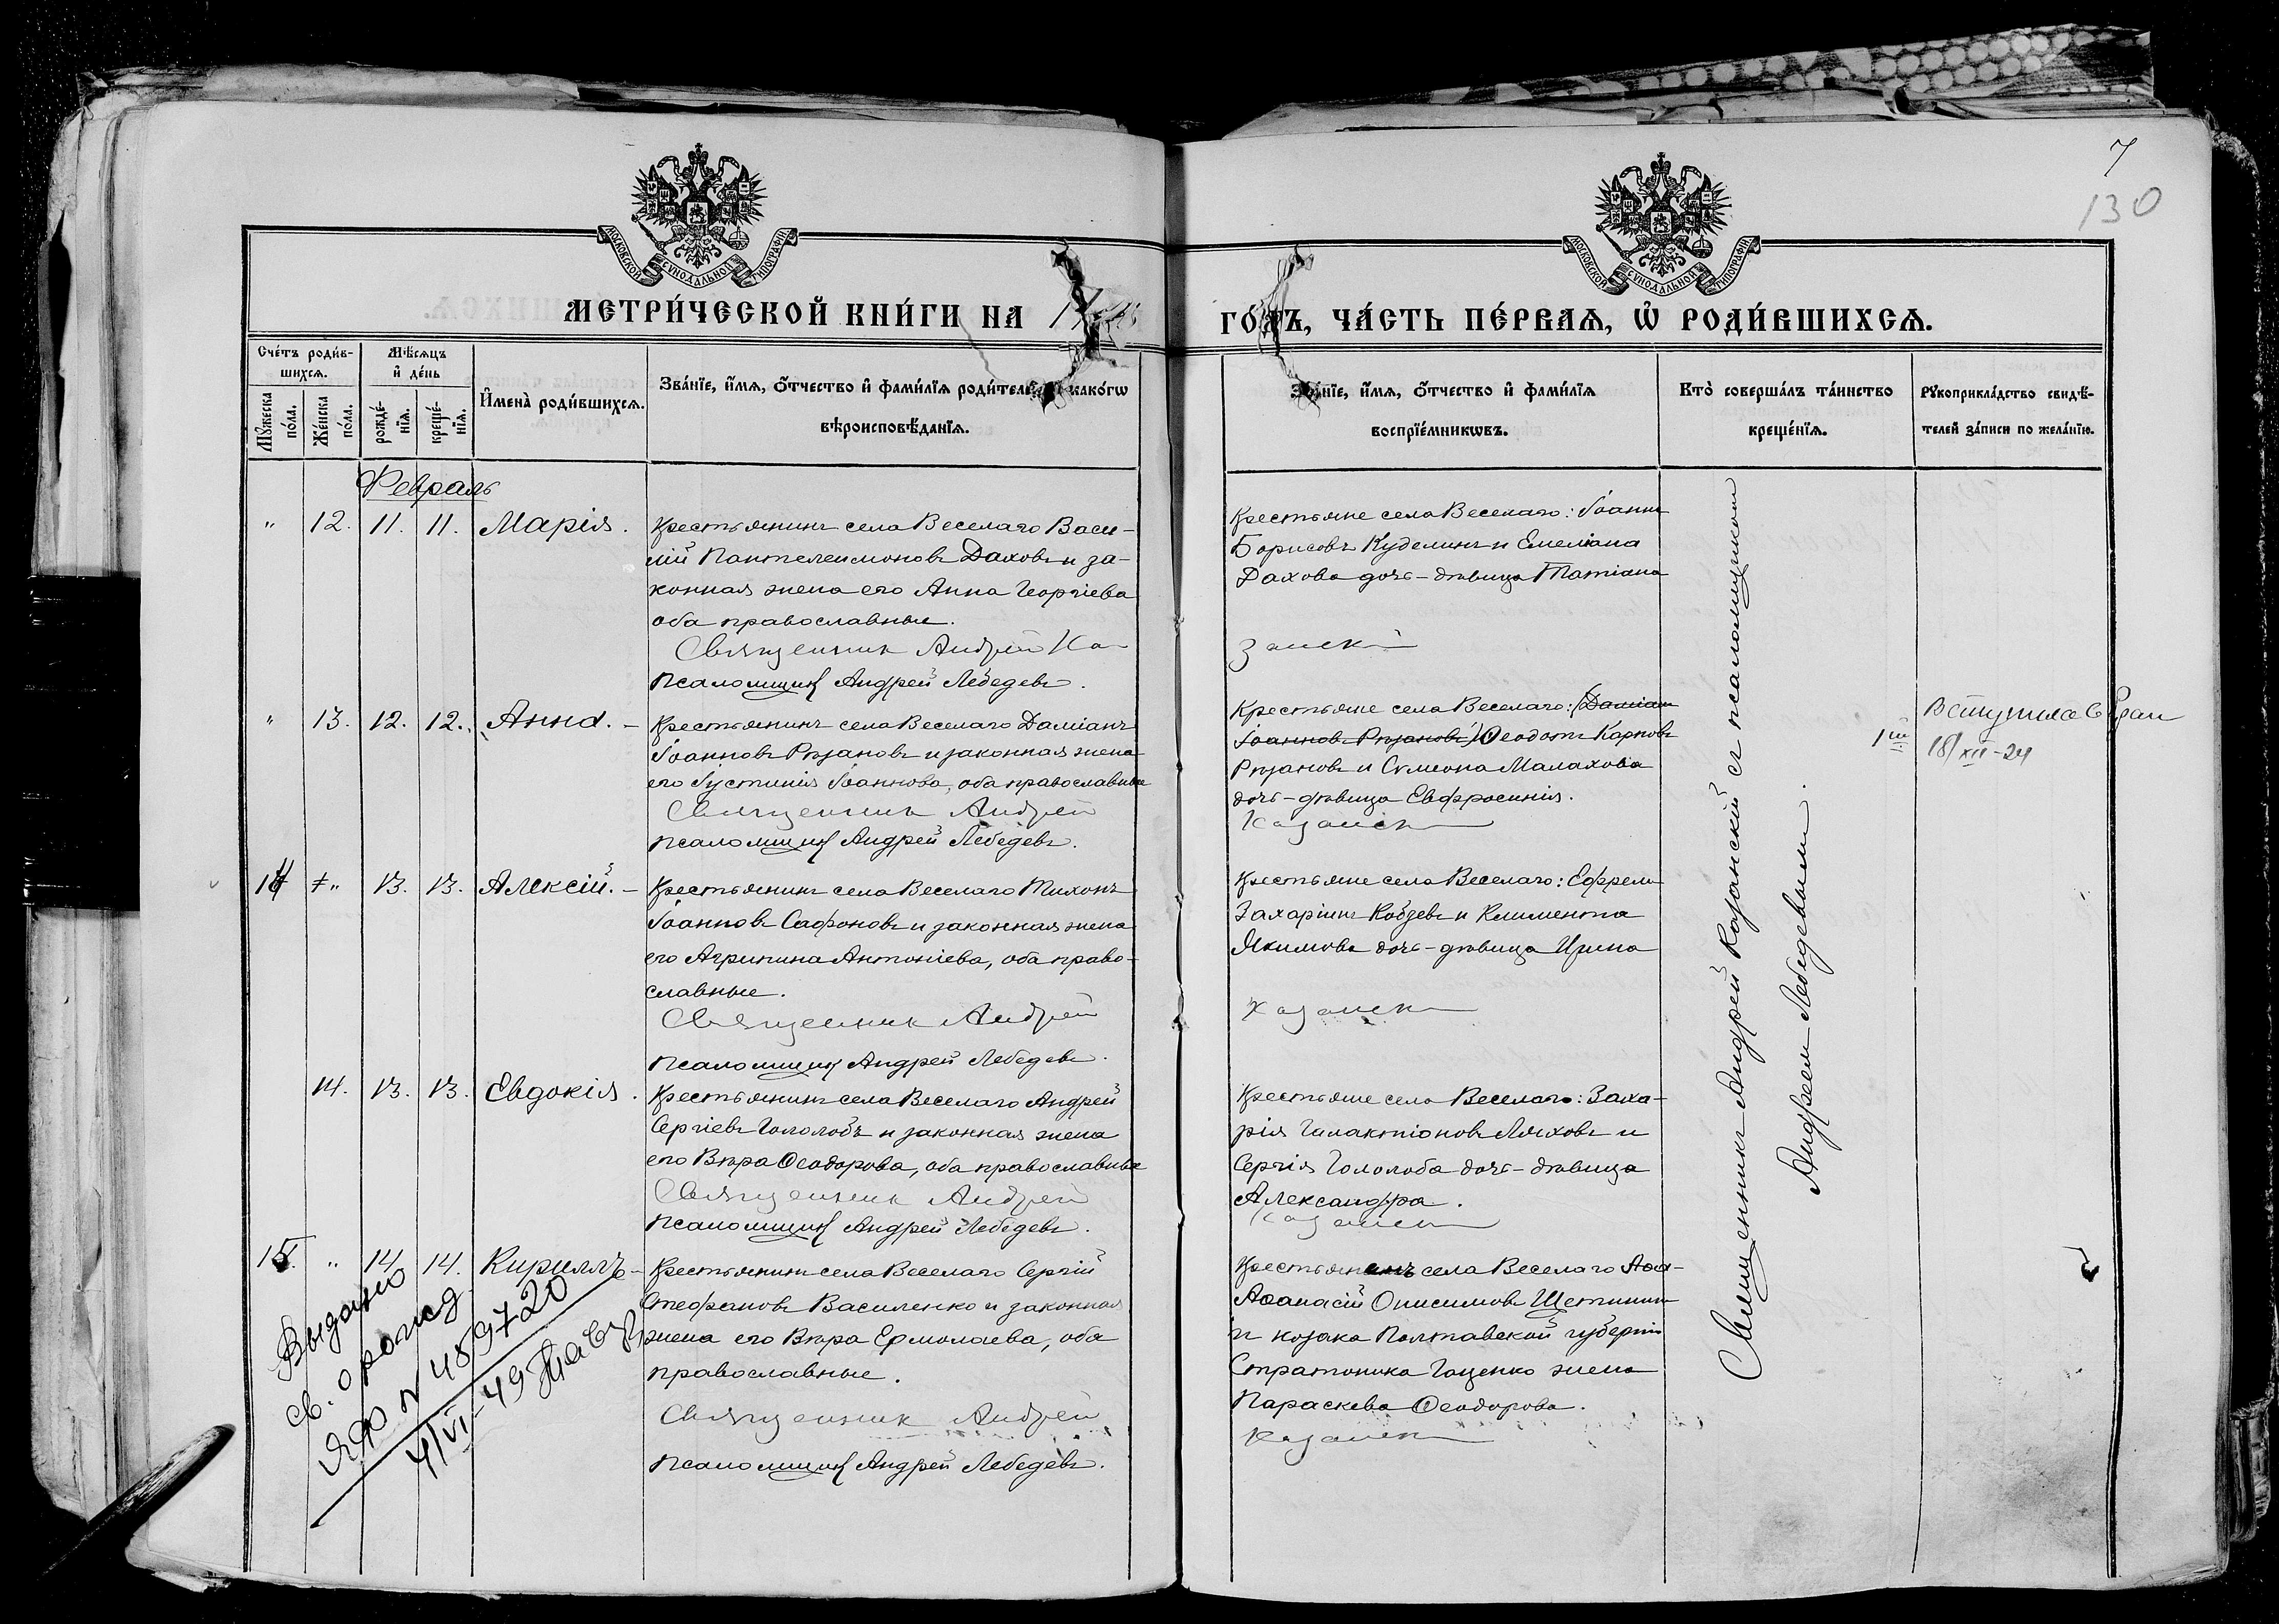 7
130
МОСКОВСКОЙ СѴНОДАЛЬНОЙ ТИПОГРАФІИ
МОСКОВСКОЙ СѴНОДАЛЬНОЙ ТИПОГРАФІИ
МЕТРИ́ЧЕСКОЙ КНИ́ГИ НА
ГО́ДЪ, ЧА́СТЬ ПЕ́РВАЯ, Ѡ҆ РОДИ́ВШИХСЯ.
Сче́тъ роди́в-
шихся.
Мѣ́сяцъ
и҆ де́нь
Мꙋ́жеска
по́ла.
Же́нска
по́ла.
рожде́-
нїя.
креще́-
нїя.
И҆мена̀ роди́вшихся.
Зва́нїе, и҆́мя, ѻ҆́тчество и҆ фами́лїя роди́телей, како́гѡ
вѣроисповѣ́данїя.
Зва́нїе, и҆́мя, ѻ҆́тчество и҆ фами́лїя
воспрїе́мникѡвъ.
Кто̀ соверша́лъ та́инство
креще́нїя.
Рꙋкоприкла́дство свидѣ́-
телей за́писи по жела́нїю.
Февраль
" 12. 11. 11. Марія.
Крестьянинъ села Веселаго Васи-
лій Пантелеимоновъ Даховъ и за-
конная жена его Анна Георгіева
оба православные.
Священник Андрей Ка
Псаломщикъ Андрей Лебедевъ.
Крестьяне села Веселаго: Іоаннъ
Борисовъ Куделинъ и Емеліана
Дахова дочь-дѣвица Татіана
занскій
" 13. 12. 12. Анна. –
Крестьянинъ села Веселаго Даміанъ
Іоанновъ Рязановъ и законная жена
его Іустинія Іоаннова, оба православные
Священник Андрей
Псаломщикъ Андрей Лебедевъ.
Крестьяне села Веселаго: (Даміанъ
Іоанновъ Рязановъ) Ѳеодотъ Карповъ
Рязановъ и Сѵмеона Малахова
дочь-дѣвица Евфросинія.
Казанск
1ый
Вступила в брак
18/XII-24
14 " 13. 13. Алексій. –
Крестьянинъ села Веселаго Тихонъ
Іоанновъ Сафоновъ и законная жена
его Агрипина Антоніева, оба право-
славные.
Священник Андрей
Псаломщикъ Андрей Лебедевъ.
Крестьяне села Веселаго: Ефремъ
Захаріинъ Кобзевъ и Климента
Якимова дочь-дѣвица Ирина
Казанск
14. 13. 13. Евдокія.
Крестьянинъ села Веселаго Андрей
Сергіевъ Гололобъ и законная жена
его Вѣра Ѳеодорова, оба православные
Священник Андрей
Псаломщикъ Андрей Лебедевъ.
Крестьяне села Веселаго: Заха-
рія Галактіоновъ Ляховъ и
Сергія Гололоба дочь-дѣвица
Александра.
Казанск
15. " 14. 14. Кириллъ –
Крестьянинъ села Веселаго Сергій
Стефановъ Василенко и законная
жена его Вѣра Ермолаева, оба
православные.
Священник Андрей
Псаломщикъ Андрей Лебедевъ.
Крестьянинъ села Веселаго Аѳа-
Аѳанасій Онисимовъ Щетининъ
и козака Полтавской губерніи
Стратоника Гаценко жена
Параскева Ѳеодорова.
Казанск
Выдано
св. о рожд.
ЯЮ № 459720
4/VI-49
Священникъ Андрей Казанскій съ псаломщикомъ
Андреемъ Лебедевымъ.